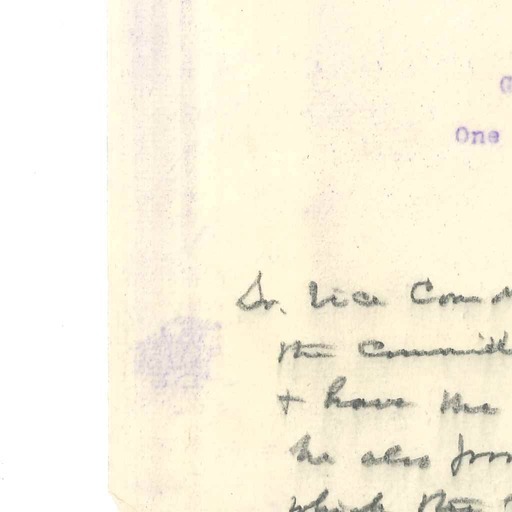 One
Dr. Vice Com
the Committ
+ have the
he also from
which the